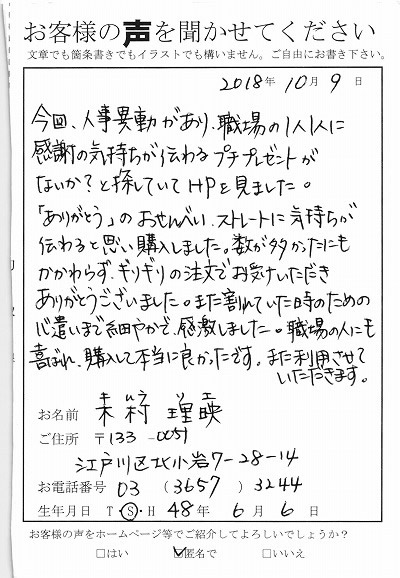 お客様の声を聞かせてください
文章でも箇条書きでもイラストでも構いません。ご自由にお書き下さい。
2018年10月9日
今回、人事異動があり、職場の1人1人に
感謝の気持ちが伝わるプチプレゼントが
ないか?と探していてHPを見ました。
「ありがとう」のおせんべい、ストレートに気持ちが
伝わると思い購入しました。数が多かったにも
かかわらず、ギリギリの注文でお受けいただき
ありがとうございました。また割れていた時のための
心遣いまで細やかで、感激しました。職場の人にも
喜ばれ、購入して本当に良かったです。また利用させて
いただきます。
お名前 木村 理映
ご住所 〒133-0051
江戸川区北小岩7-28-14
お電話番号 03 (3657) 3244
生年月日 T・S・H 48年 6月 6日
お客様の声をホームページ等でご紹介してよろしいでしょうか?
□はい ☑匿名で □いいえ